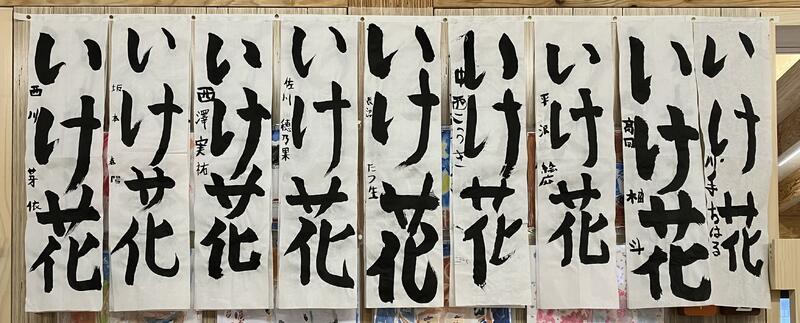 いけ花
川手ちはる
いけ花
いけ花
平沢
いけ花
中西
いけ花
たつ生
いけ花
佐川 穂乃果
いけ花
西澤 実祐
いけ花
坂本
いけ花
西川 芽依